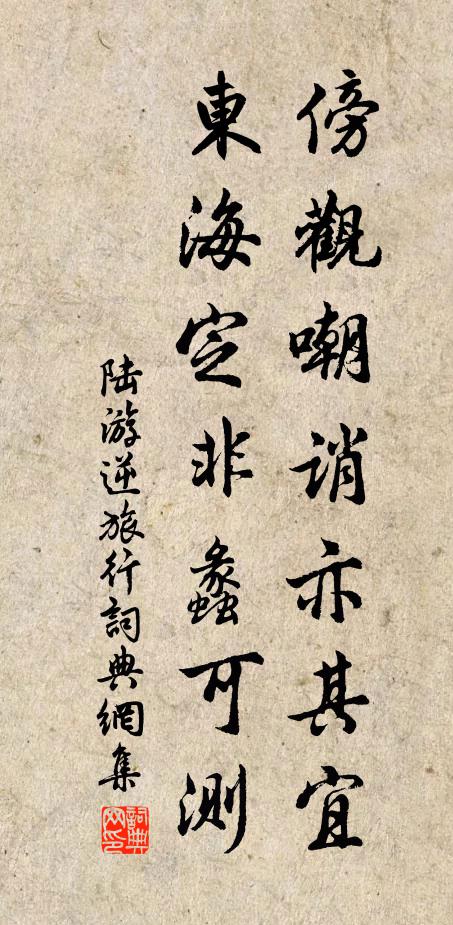 傍觀嘲誚亦其宜
東海定非蠡可測
陸游逆旅行詞典網集
詞典网印